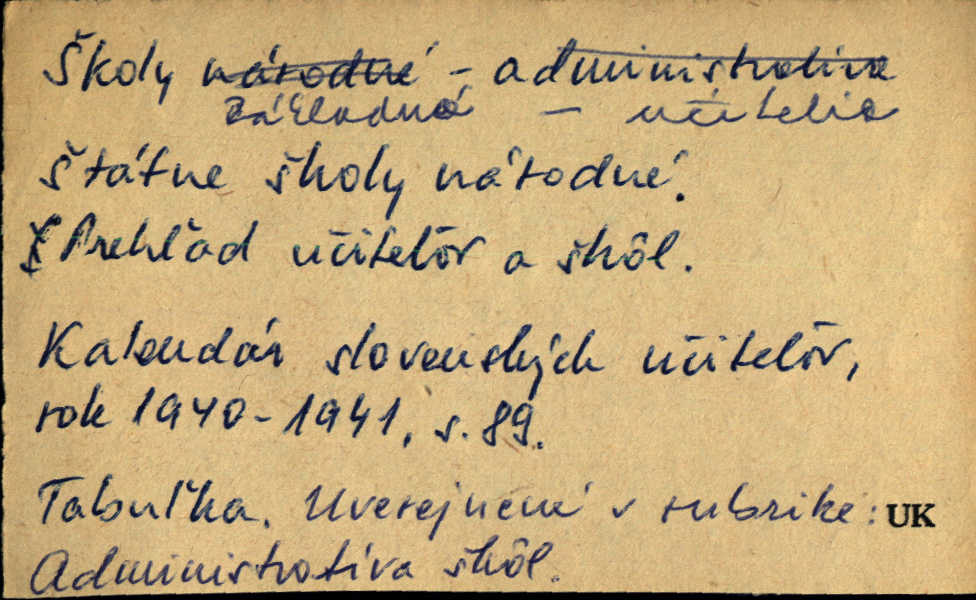 Školy národné - administratíva
základné - učitelia
Štátne školy národné.
[Prehľad učiteľov a škôl.
Kalendár slovenských učiteľov,
rok 1940-1941, s. 89.
Tabuľka. Uverejnené v rubrike: UK
Administratíva škôl.